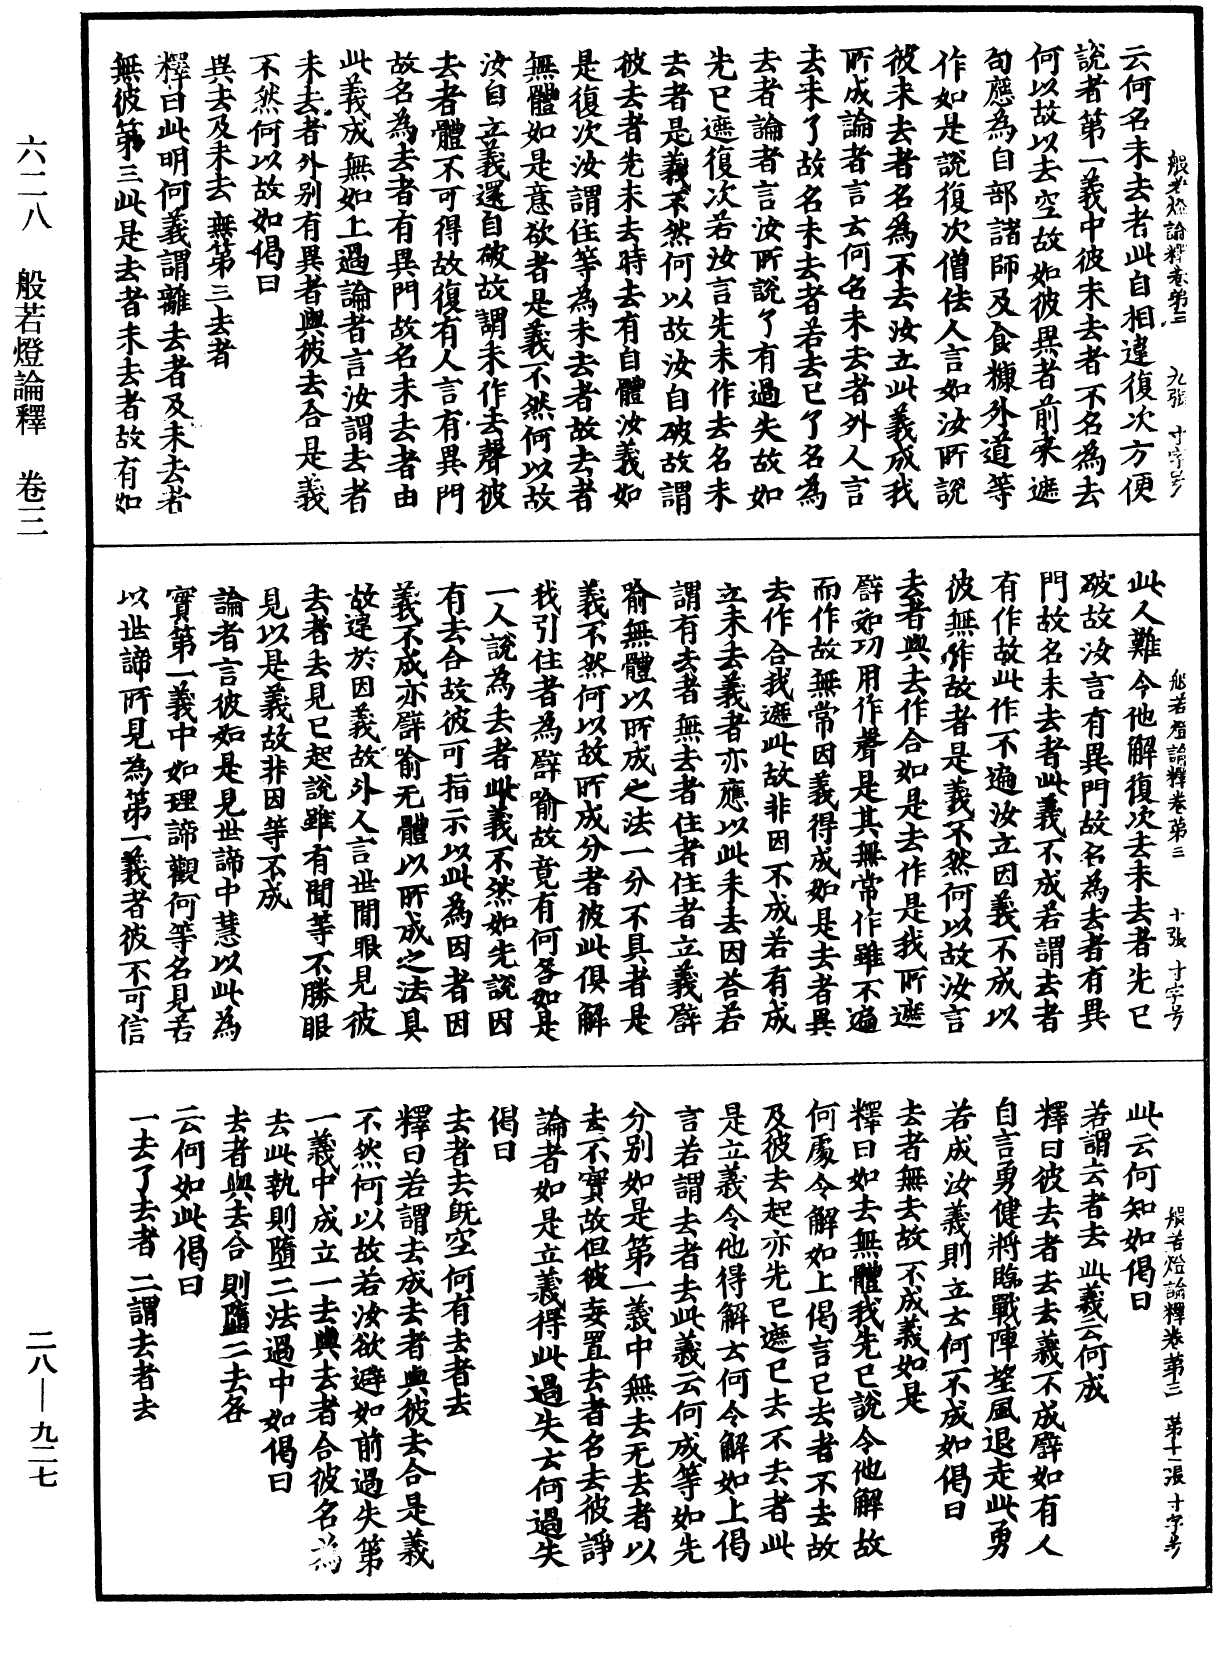 般若燈論釋卷第三　九張　寸字号
云何名未去者此自相違復次方便
說者第一義中彼未去者不名為去
何以故以去空故如彼異者前來遮
句應為自部諸師及食糠外道等
作如是說復次僧佉人言如汝所說
彼未去者名為不去汝立此義成我
所成論者言云何名未去者外人言
去未了故名未去者若去已了名為
去者論者言汝所說了有過失故如
先已遮復次若汝言先未作去名未
去者是義不然何以故汝自破故謂
彼去者先未去時去有自體汝義如
是復次汝謂住等為未去者故去者
無體如是意欲者是義不然何以故
汝自立義還自破故謂未作去聲彼
去者體不可得故復有人言有異門
故名為去者有異門故名未去者由
此義成無如上過論者言汝謂去者
未去者外別有異者與彼去合是義
不然何以故如偈曰
異去及未去　無第三去者
釋曰此明何義謂離去者及未去者
無彼第三此是去者未去者故有如
般若燈論釋卷第三　十張　寸字号
此人難今他解復次去未去者先已
破故汝言有異門故名為去者有異
門故名未去者此義不成若謂去者
有作故此作不遍汝立因義不成以
彼無作故者是義不然何以故汝言
去者與去作合如是去作是我所遮
譬如功用作聲是其無常作雖不遍
而作故無常因義得成如是去者異
去作合我遮此故非因不成若有成
立未去義者亦應以此未去因荅若
謂有去者無去者住者住者立義譬
喻無體以所成之法一分不具者是
義不然何以故所成分者彼此俱解
我引住者為譬喻故竟有何咎如是
一人說為去者此義不然如先說因
有去合故彼可指示以此為因者因
義不成亦譬喻无體以所成之法具
故違於因義故外人言世間眼見彼
去者去見已起說雖有聞等不勝眼
見以是義故非因等不成
論者言彼如是見世諦中慧以此為
實第一義中如理諦觀何等名見若
以世諦所見為第一義者彼不可信
般若燈論釋卷第三　第十一張　寸字号
此云何知如偈曰
若謂去者去　此義云何成
釋曰彼去者去去義不成譬如有人
自言勇健將臨戰陣望風退走此勇
若成汝義則立去何不成如偈曰
去者無去故　不成義如是
釋曰如去無體我先已說令他解故
何處令解如上偈言已去者不去故
及彼去起亦先已遮已去不去者此
是立義令他得解去何令解如上偈
言若謂去者去此義云何成等如先
分別如是第一義中無去无去者以
去不實故但彼妄置去者名去彼諍
論者如是立義得此過失云何過失
偈曰
去者去旣空　何有去者去
釋曰若謂去成去者與彼去合是義
不然何以故若汝欲避如前過失第
一義中成立一去與去者合彼名為
去此執則墮二法過中如偈曰
去者與去合　則墮二去咎
云何如此偈曰
一去了去者　二謂去者去
六二八　般若燈論釋　卷三
二八—九二七